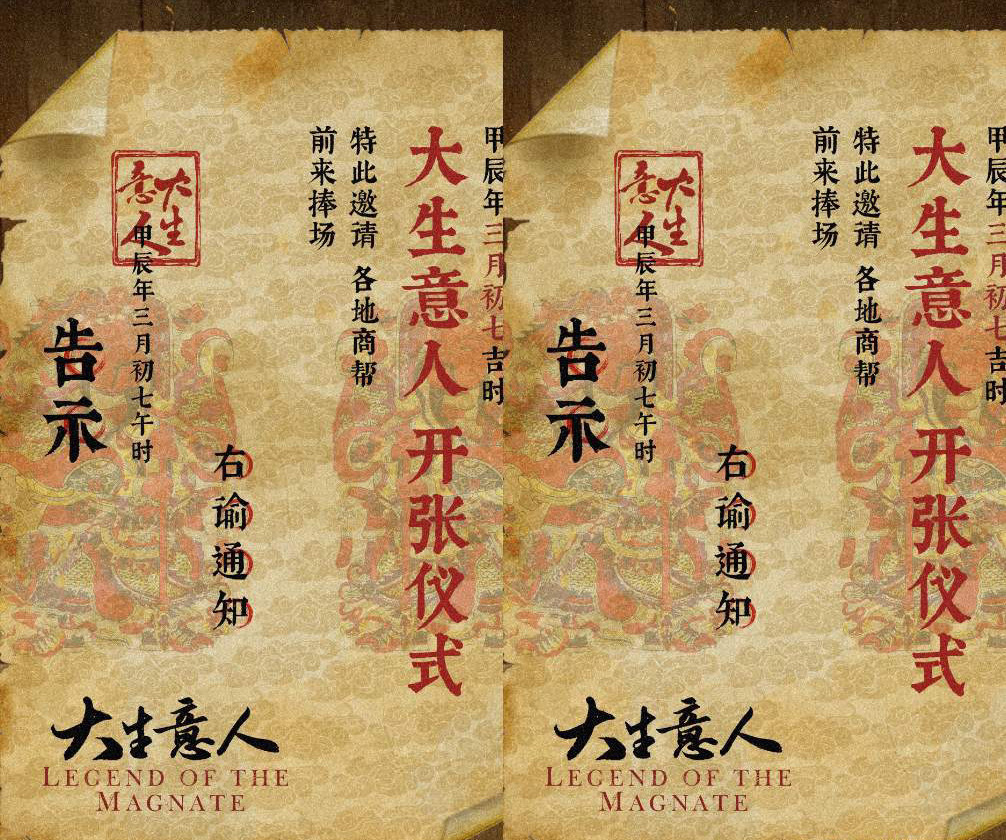 甲辰年三月初七吉时
大生意人 开张仪式
特此邀请 各地商帮
前来捧场
右谕通知
大生意人
甲辰年三月初七午时
告示
大生意人
LEGEND OF THE
MAGNATE
甲辰年三月初七吉时
大生意人 开张仪式
特此邀请 各地商帮
前来捧场
右谕通知
大生意人
甲辰年三月初七午时
告示
大生意人
LEGEND OF THE
MAGNATE